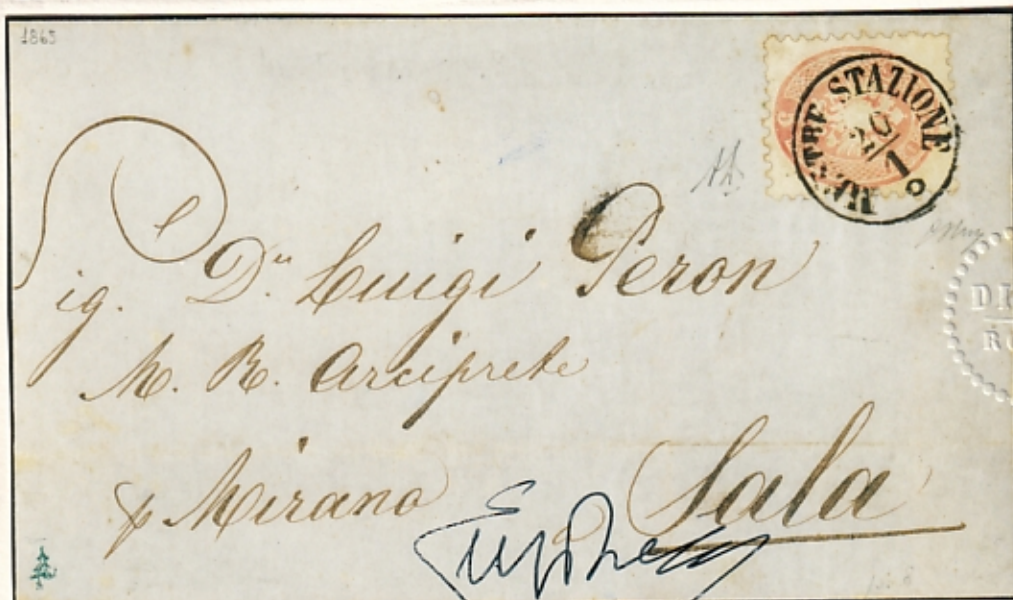 1863
MESTRE STAZIONE
20/1
Sig. Dn Luigi Peron
M. R. Arciprete
p Mirano Sala